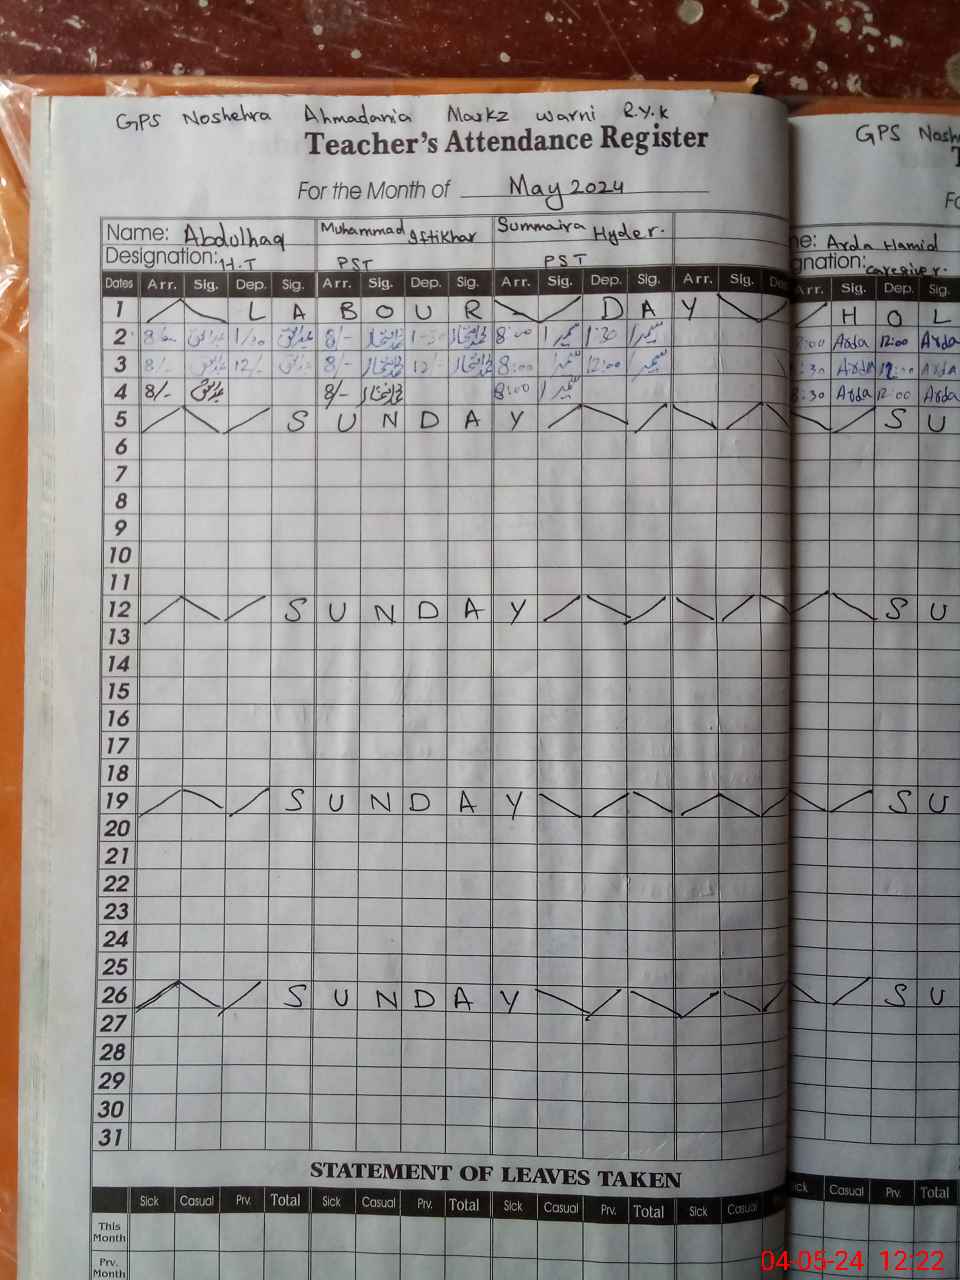 GPS Noshehra Ahmadania Markz Warni R.Y.K
Teacher's Attendance Register
For the Month of May 2024
Name: Abdulhaq Muhammad Iftikhar Summaira Hyder.
Designation: H.T PST PST
Dates Arr. Sig. Dep. Sig. Arr. Sig. Dep. Sig. Arr. Sig. Dep. Sig. Arr. Sig.
1 L A B O U R D A Y
2 8/- 1/30 8/- 1-30 8:00 1:30
3 8/- 12/- 8/- 12 8:00 12:00
4 8/- 8/- 8:00
5 S U N D A Y
6
7
8
9
10
11
12 S U N D A Y
13
14
15
16
17
18
19 S U N D A Y
20
21
22
23
24
25
26 S U N D A Y
27
28
29
30
31
STATEMENT OF LEAVES TAKEN
Sick Casual Prv. Total Sick Casual Prv. Total Sick Casual Prv. Total Sick Casual
This Month
Prv. Month
GPS Nosh
Arda Hamid
caregiver.
Arr. Sig. Dep. Sig.
H O L
:00 Arda 12:00 Arda
:30 Arda 12:00 Arda
8:30 Arda 12:00 Arda
S U
S U
S U
S U
Casual Prv. Total
04-05-24 12:22